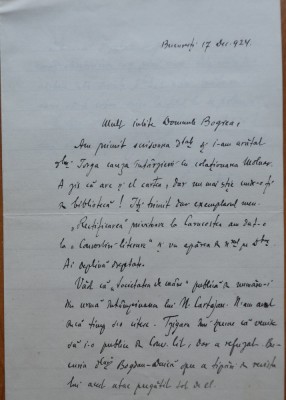 București 17 Dec. 924.
Mult iubite Domnule Bogrea,
Am primit scrisoarea Dtale și i-am arătat
Dlui Iorga cauza întârzierii cu colaționarea Molnar.
A zis că are și el cartea, dar nu mai știe unde-o ți
în bibliotecă! Îți trimit dar exemplarul meu.
„Rectificarea” privitoare la Caracostea am dat-o
la „Convorbiri literare” și va apărea în
Ai deplină dreptate.
Văd că „Societatea de mâine” publică în
din urmă întâmpinarea lui N. Cartojan. N-am avut
încă timp s-o citesc. îmi spune că venise
să i-o publice în Conv. lit., dar a refuzat.
Dlui Bogdan-Duică spre a tipări în revista
lui acest atac pregătit de el.